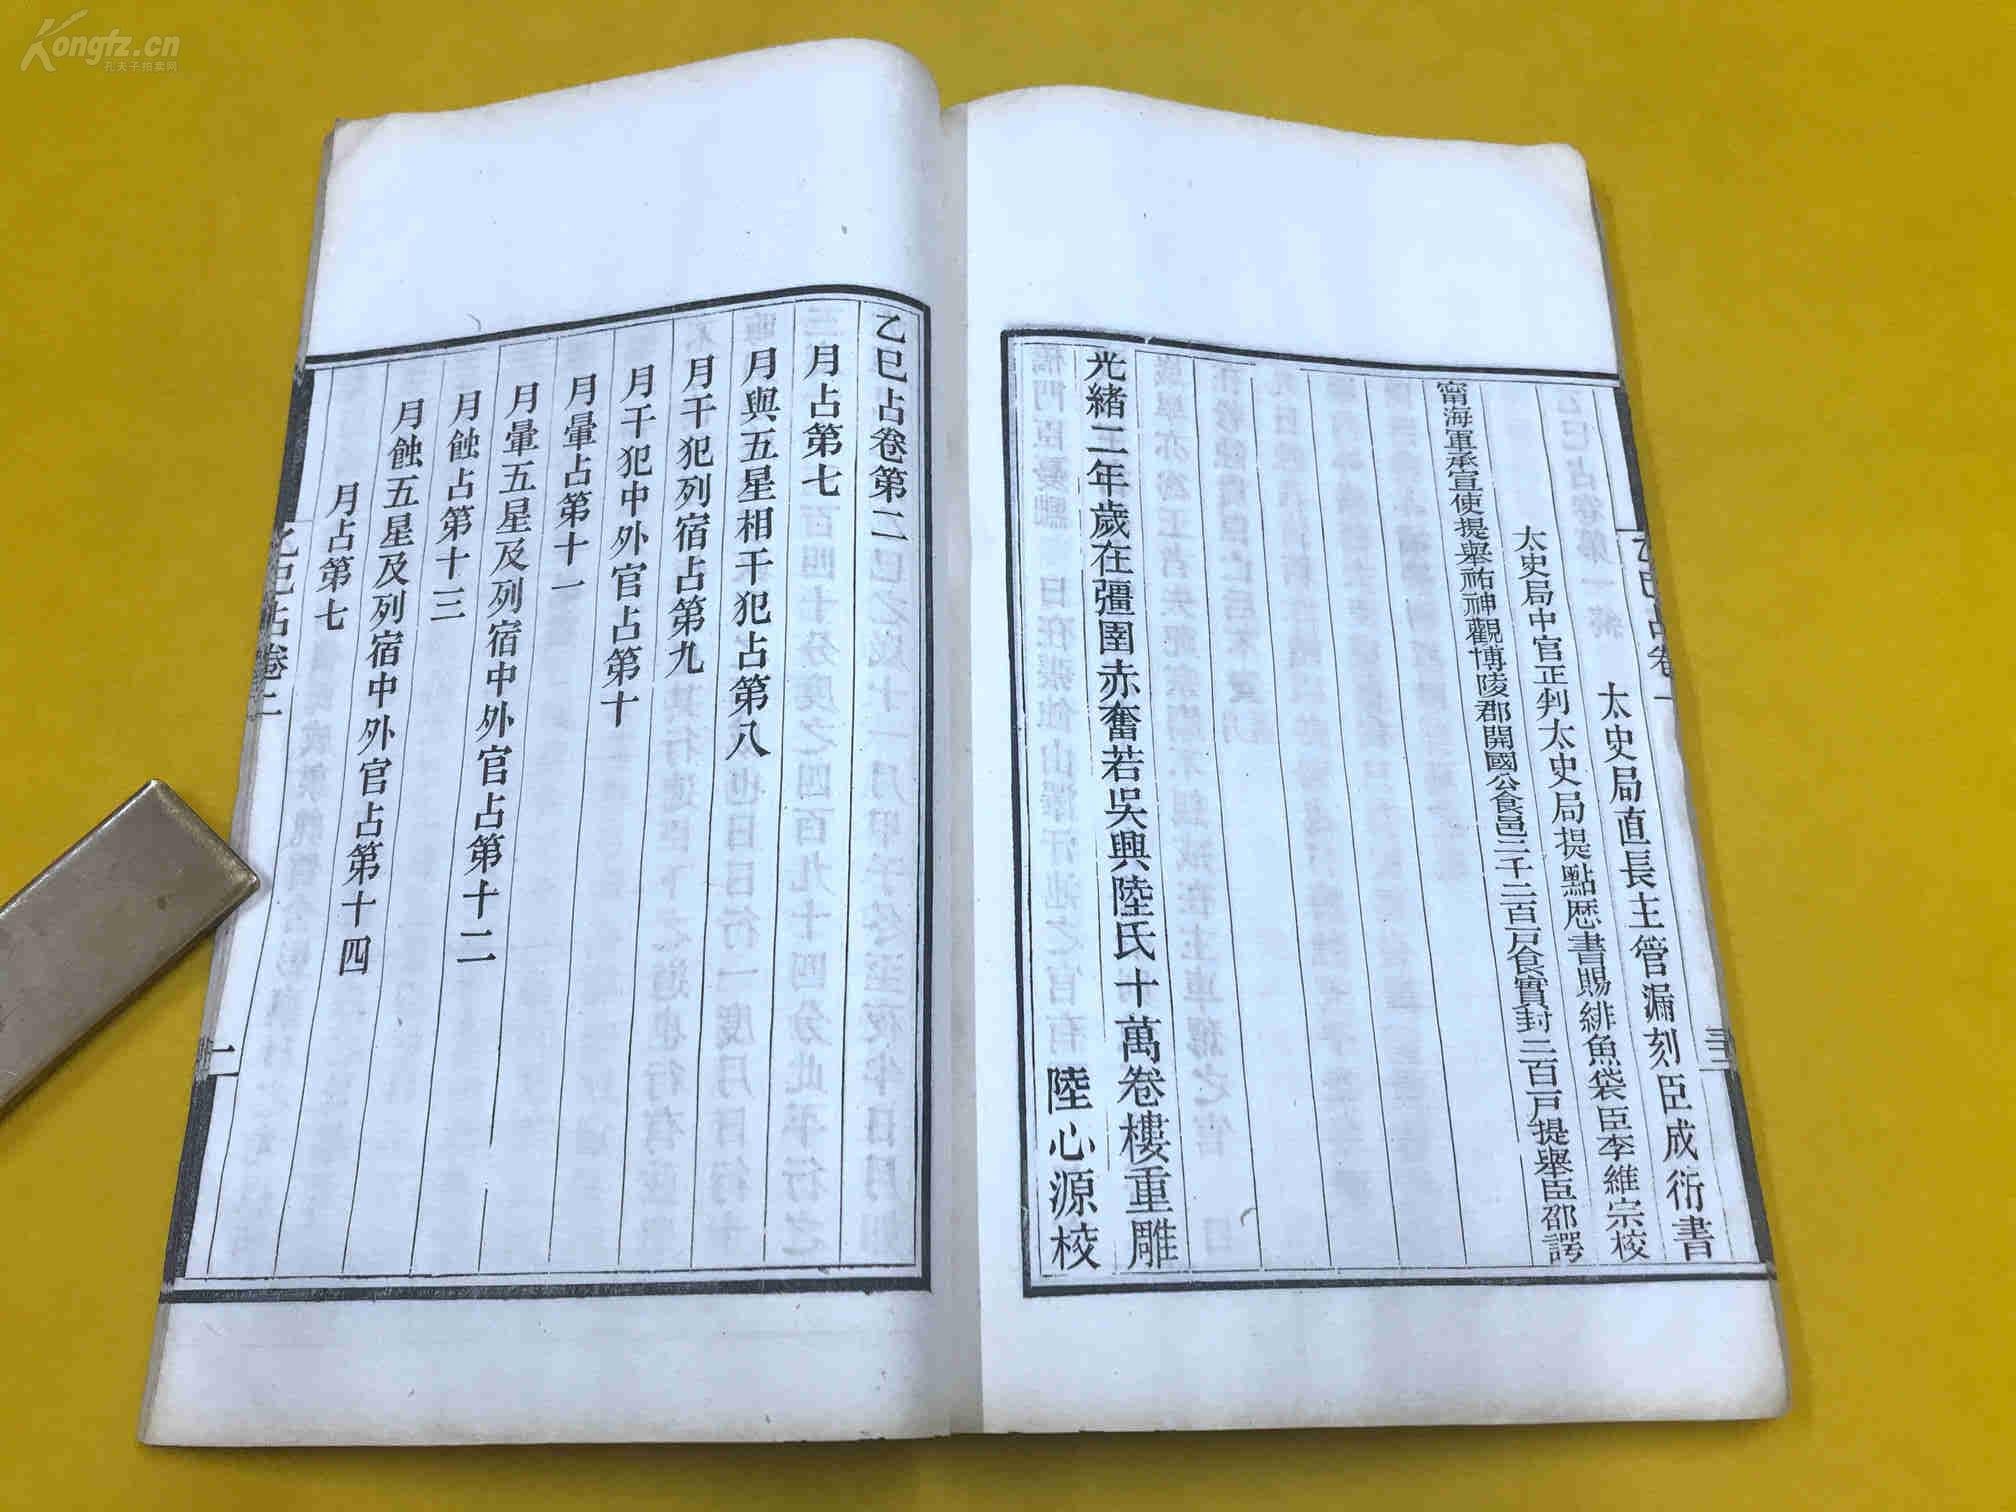 Kongfz.cn
孔夫子拍卖网
乙巳占卷一
太史局直長主管漏刻臣成衍書
太史局中官正判太史局提點厯書賜緋魚袋臣李維宗校
甯海軍承宣使提舉祐神觀博陵郡開國公食邑二千二百戸食實封二百戸提舉臣邵諤
光緒二年歲在彊圉赤奮若吳興陸氏十萬卷樓重雕
陸心源校
乙巳占卷第二
月占第七
月與五星相干犯占第八
月干犯列宿占第九
月干犯中外官占第十
月暈占第十一
月暈五星及列宿中外官占第十二
月蝕占第十三
月蝕五星及列宿中外官占第十四
月占第七
乙巳占卷二
一